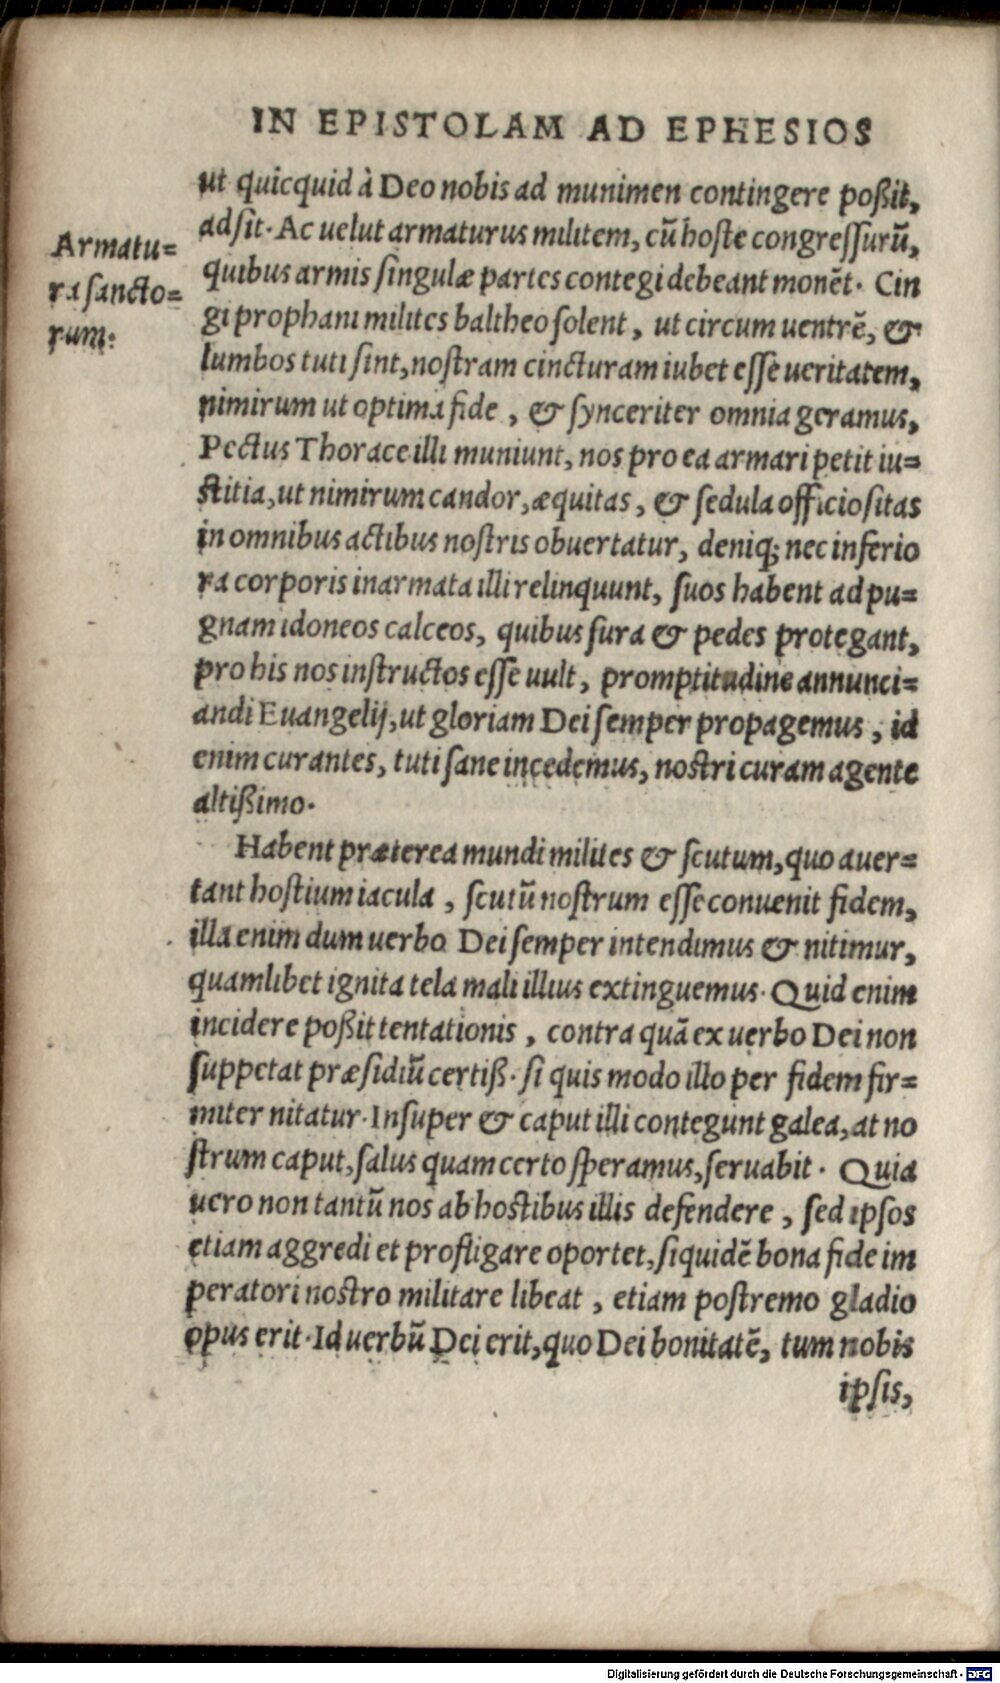 IN EPISTOLAM AD EPHESIOS
ut quicquid à Deo nobis ad munimen contingere poßit,
adsit. Ac uelut armaturus militem, cū hoste congressurū,
Armatu=
ra sancto=
rum.
quibus armis singulæ partes contegi debeant monēt. Cin
gi prophani milites baltheo solent, ut circum uentrē, &
lumbos tuti sint, nostram cincturam iubet esse ueritatem,
nimirum ut optima fide, & synceriter omnia geramus,
Pectus Thorace illi muniunt, nos pro ea armari petit iu=
stitia, ut nimirum candor, æquitas, & sedula officiositas
in omnibus actibus nostris obuertatur, deniq; nec inferio
ra corporis inarmata illi relinquunt, suos habent ad pu=
gnam idoneos calceos, quibus sura & pedes protegant,
pro his nos instructos esse uult, promptitudine annunci=
andi Euangelij, ut gloriam Dei semper propagemus, id
enim curantes, tuti sane incedemus, nostri curam agente
altißimo.
Habent præterea mundi milites & scutum, quo auer=
tant hostium iacula, scutū nostrum esse conuenit fidem,
illa enim dum uerbo Dei semper intendimus & nitimur,
quamlibet ignita tela mali illius extinguemus. Quid enim
incidere poßit tentationis, contra quā ex uerbo Dei non
suppetat præsidiū certiß. si quis modo illo per fidem fir=
miter nitatur. Insuper & caput illi contegunt galea, at no
strum caput, salus quam certo speramus, seruabit. Quia
uero non tantū nos ab hostibus illis defendere, sed ipsos
etiam aggredi et profligare oportet, siquidē bona fide im
peratori nostro militare libeat, etiam postremo gladio
opus erit. Id uerbū Dei erit, quo Dei bonitatē, tum nobis
ipsis,
Digitalisierung gefördert durch die Deutsche Forschungsgemeinschaft - DFG